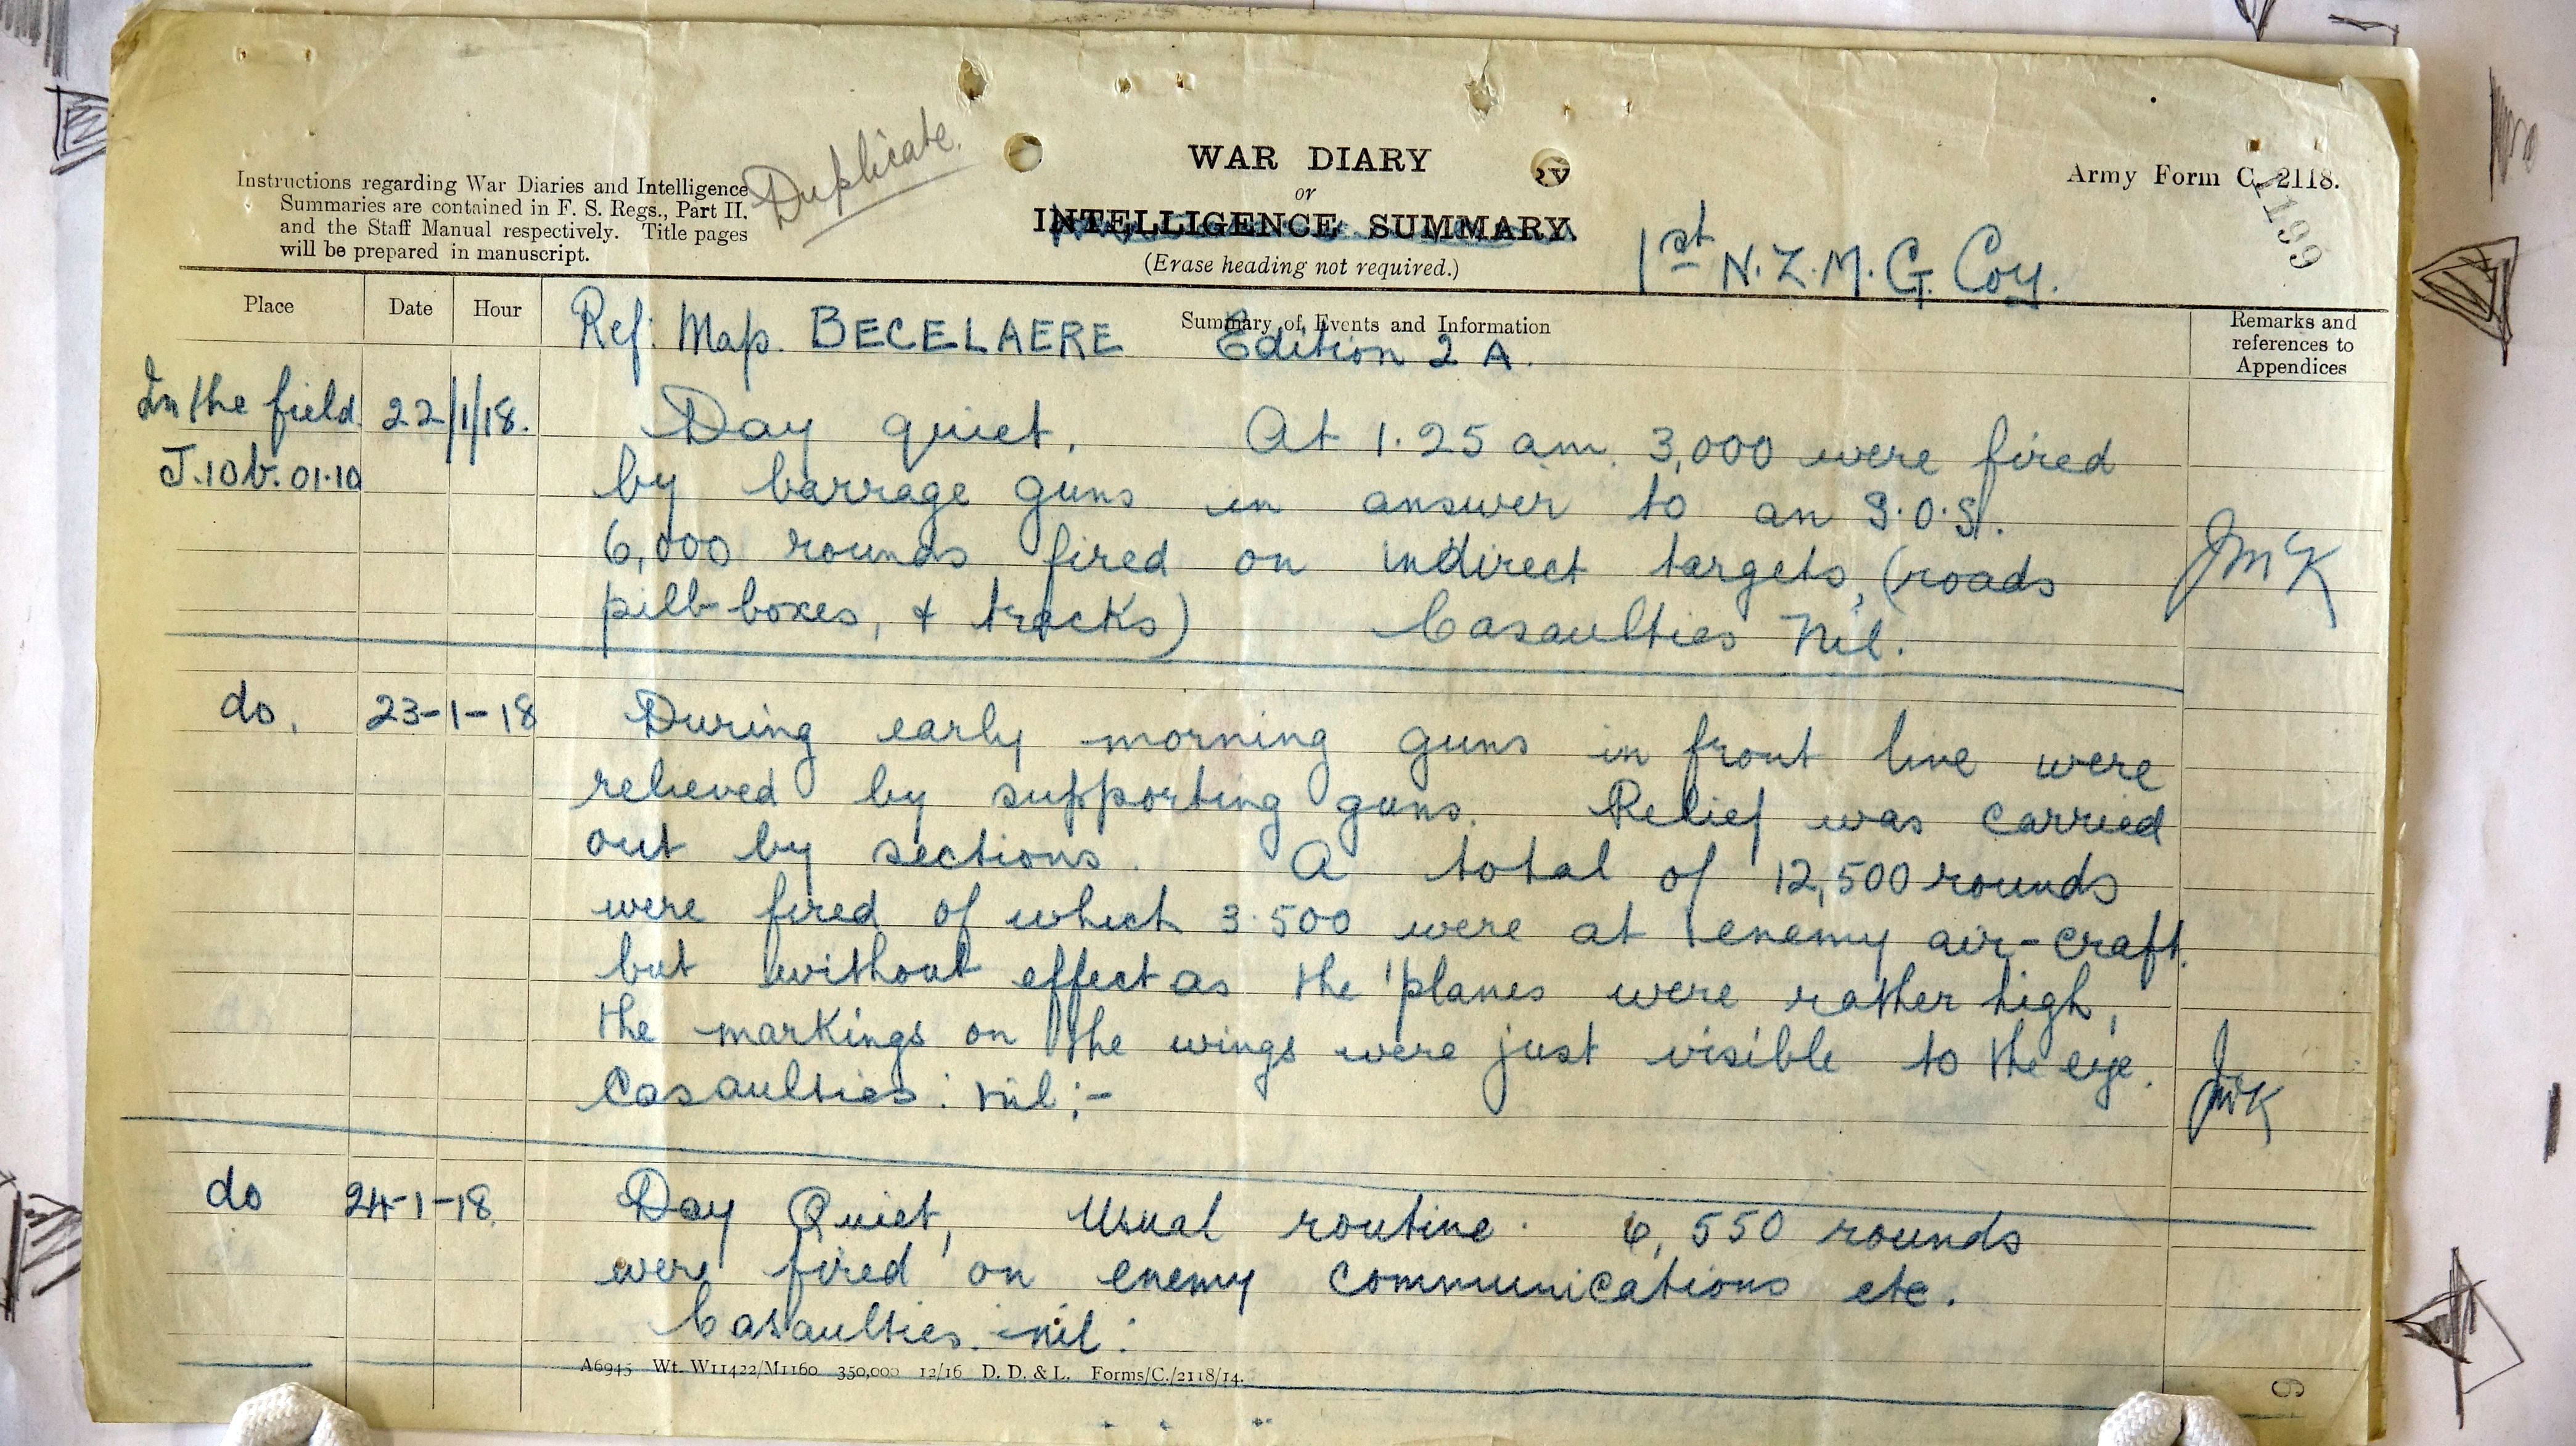 Duplicate.
Instructions regarding War Diaries and Intelligence
Summaries are contained in F. S. Regs., Part II.
and the Staff Manual respectively. Title pages
will be prepared in manuscript.
WAR DIARY
or
INTELLIGENCE SUMMARY.
(Erase heading not required.)
Army Form C. 2118.
1199
1st N.Z.M.G. Coy.
Place Date Hour
Summary of Events and Information
Remarks and
references to
Appendices
Ref: Map. BECELAERE Edition 2 A.
In the field 22/1/18. Day quiet. At 1.25 am. 3,000 were fired
J.10b.01.10 by barrage guns in answer to an S.O.S.
6,000 rounds fired on indirect targets, (roads
pill-boxes, & tracks) Casaulties Nil.
JMcK
do. 23-1-18 During early morning guns in front line were
relieved by supporting guns. Relief was carried
out by sections. A total of 12,500 rounds
were fired of which 3.500 were at enemy air-craft.
but without effect as the 'planes were rather high,
the markings on the wings were just visible to the eye.
Casaulties: nil:-
JMcK
do 24-1-18 Day Quiet, Usual routine. 6,550 rounds
were fired on enemy communications etc.
Casaulties. nil:
A6945 Wt. W11422/M1160 350,000 12/16 D. D. & L. Forms/C./2118/14.
6